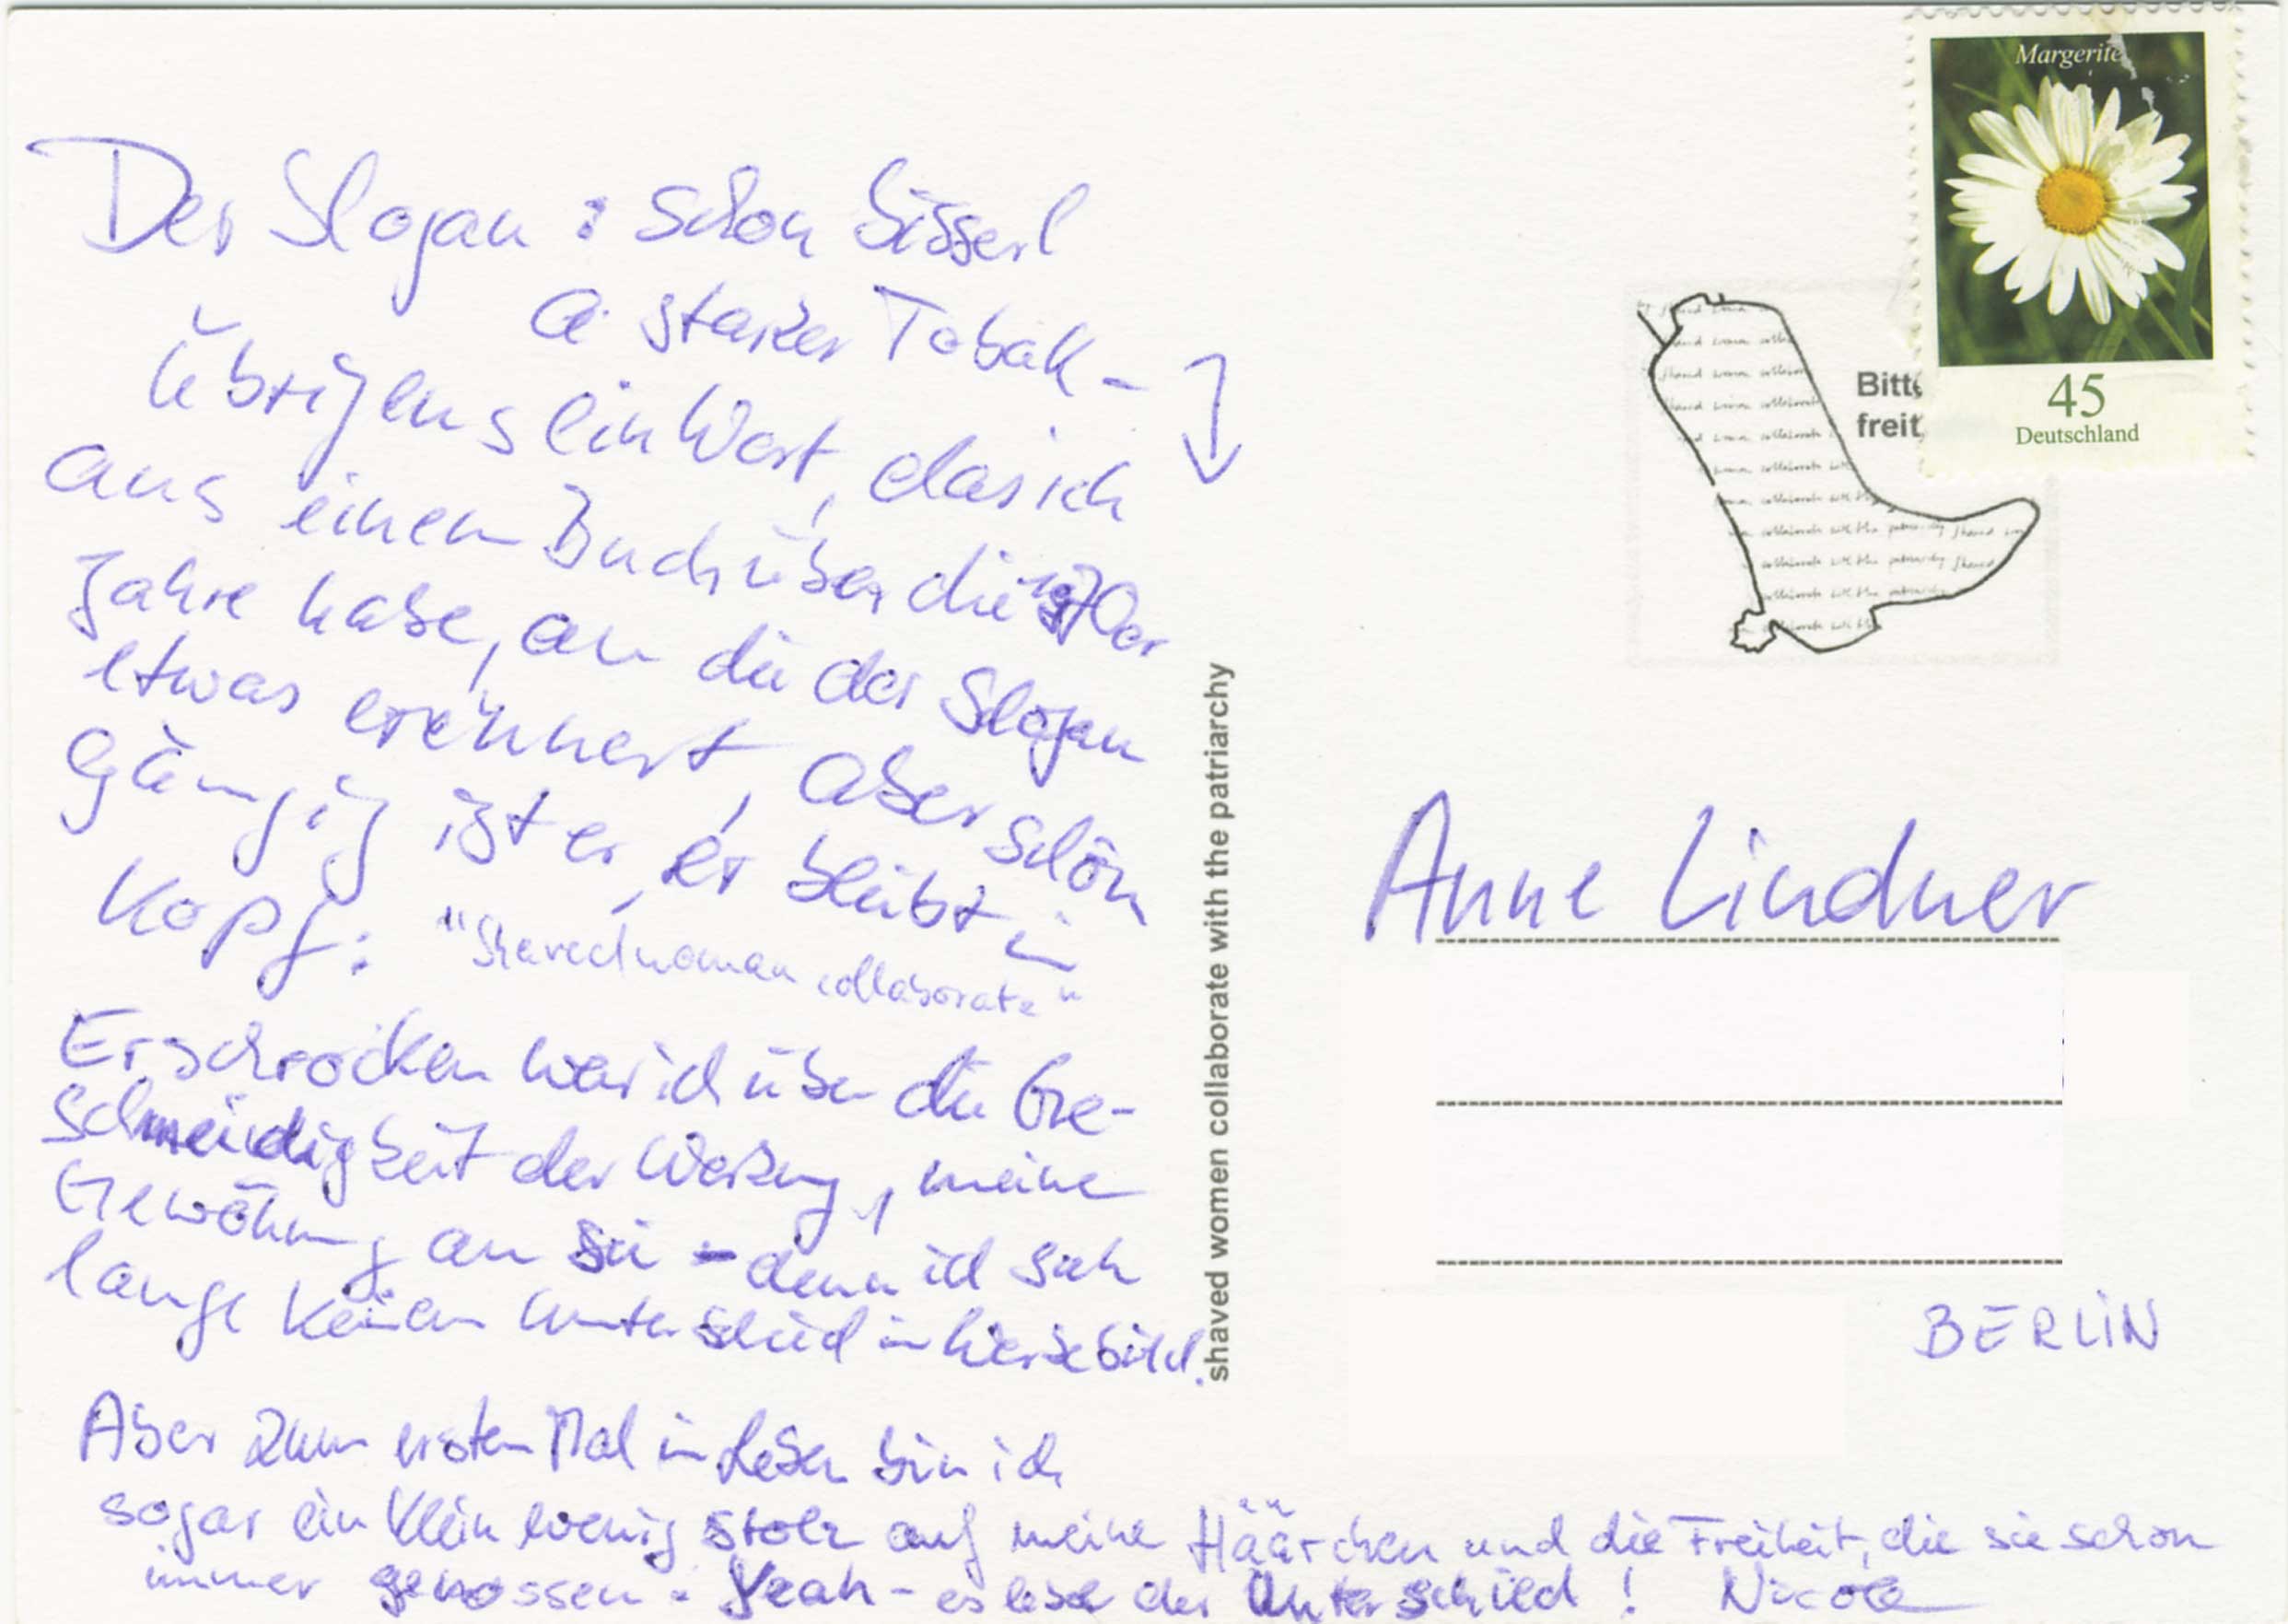 Der Slogan : schon bisserl
a starker Tobak –
übrigens ein Wort, das ich
aus einem Buch über die 1970er
Jahre habe, an die der Slogan
etwas erinnert, aber schön
gängig ist er, er bleibt im
Kopf: "Shaved woman collaborate"
Erschrocken war ich über die Ge-
schmeidigkeit der Werbung, meine
Gewöhnung an sie – denn ich sah
lange keinen Unterschied im Werbebild.
Aber zum ersten Mal im Leben bin ich
sogar ein klein wenig stolz auf meine Häärchen und die Freiheit, die sie schon
immer genossen. Yeah – es lebe der Unterschied! Nicole
shaved women collaborate with the patriarchy
Margerite
45
Deutschland
Bitte
freit
Anne Lindner
BERLIN